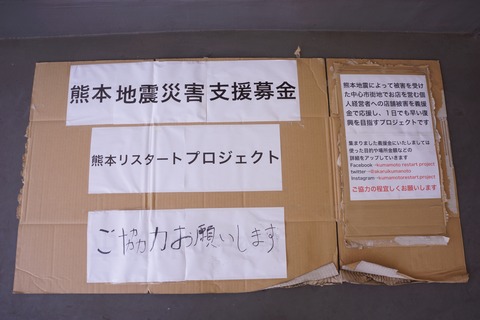 熊本地震災害支援募金
熊本リスタートプロジェクト
ご協力お願いします
熊本地震によって被害を受け
た中心市街地でお店を営む個
人経営者への店舗被害を義援
金で応援し、1日でも早い復
興を目指すプロジェクトです
集まりました義援金にいたしましては
使った目的や場所金額などの
詳細をアップしていきます
Facebook→kumamoto restart project
twitter→@akarukumamoto
Instagram→kumamotorestart.project
ご協力の程宜しくお願いします